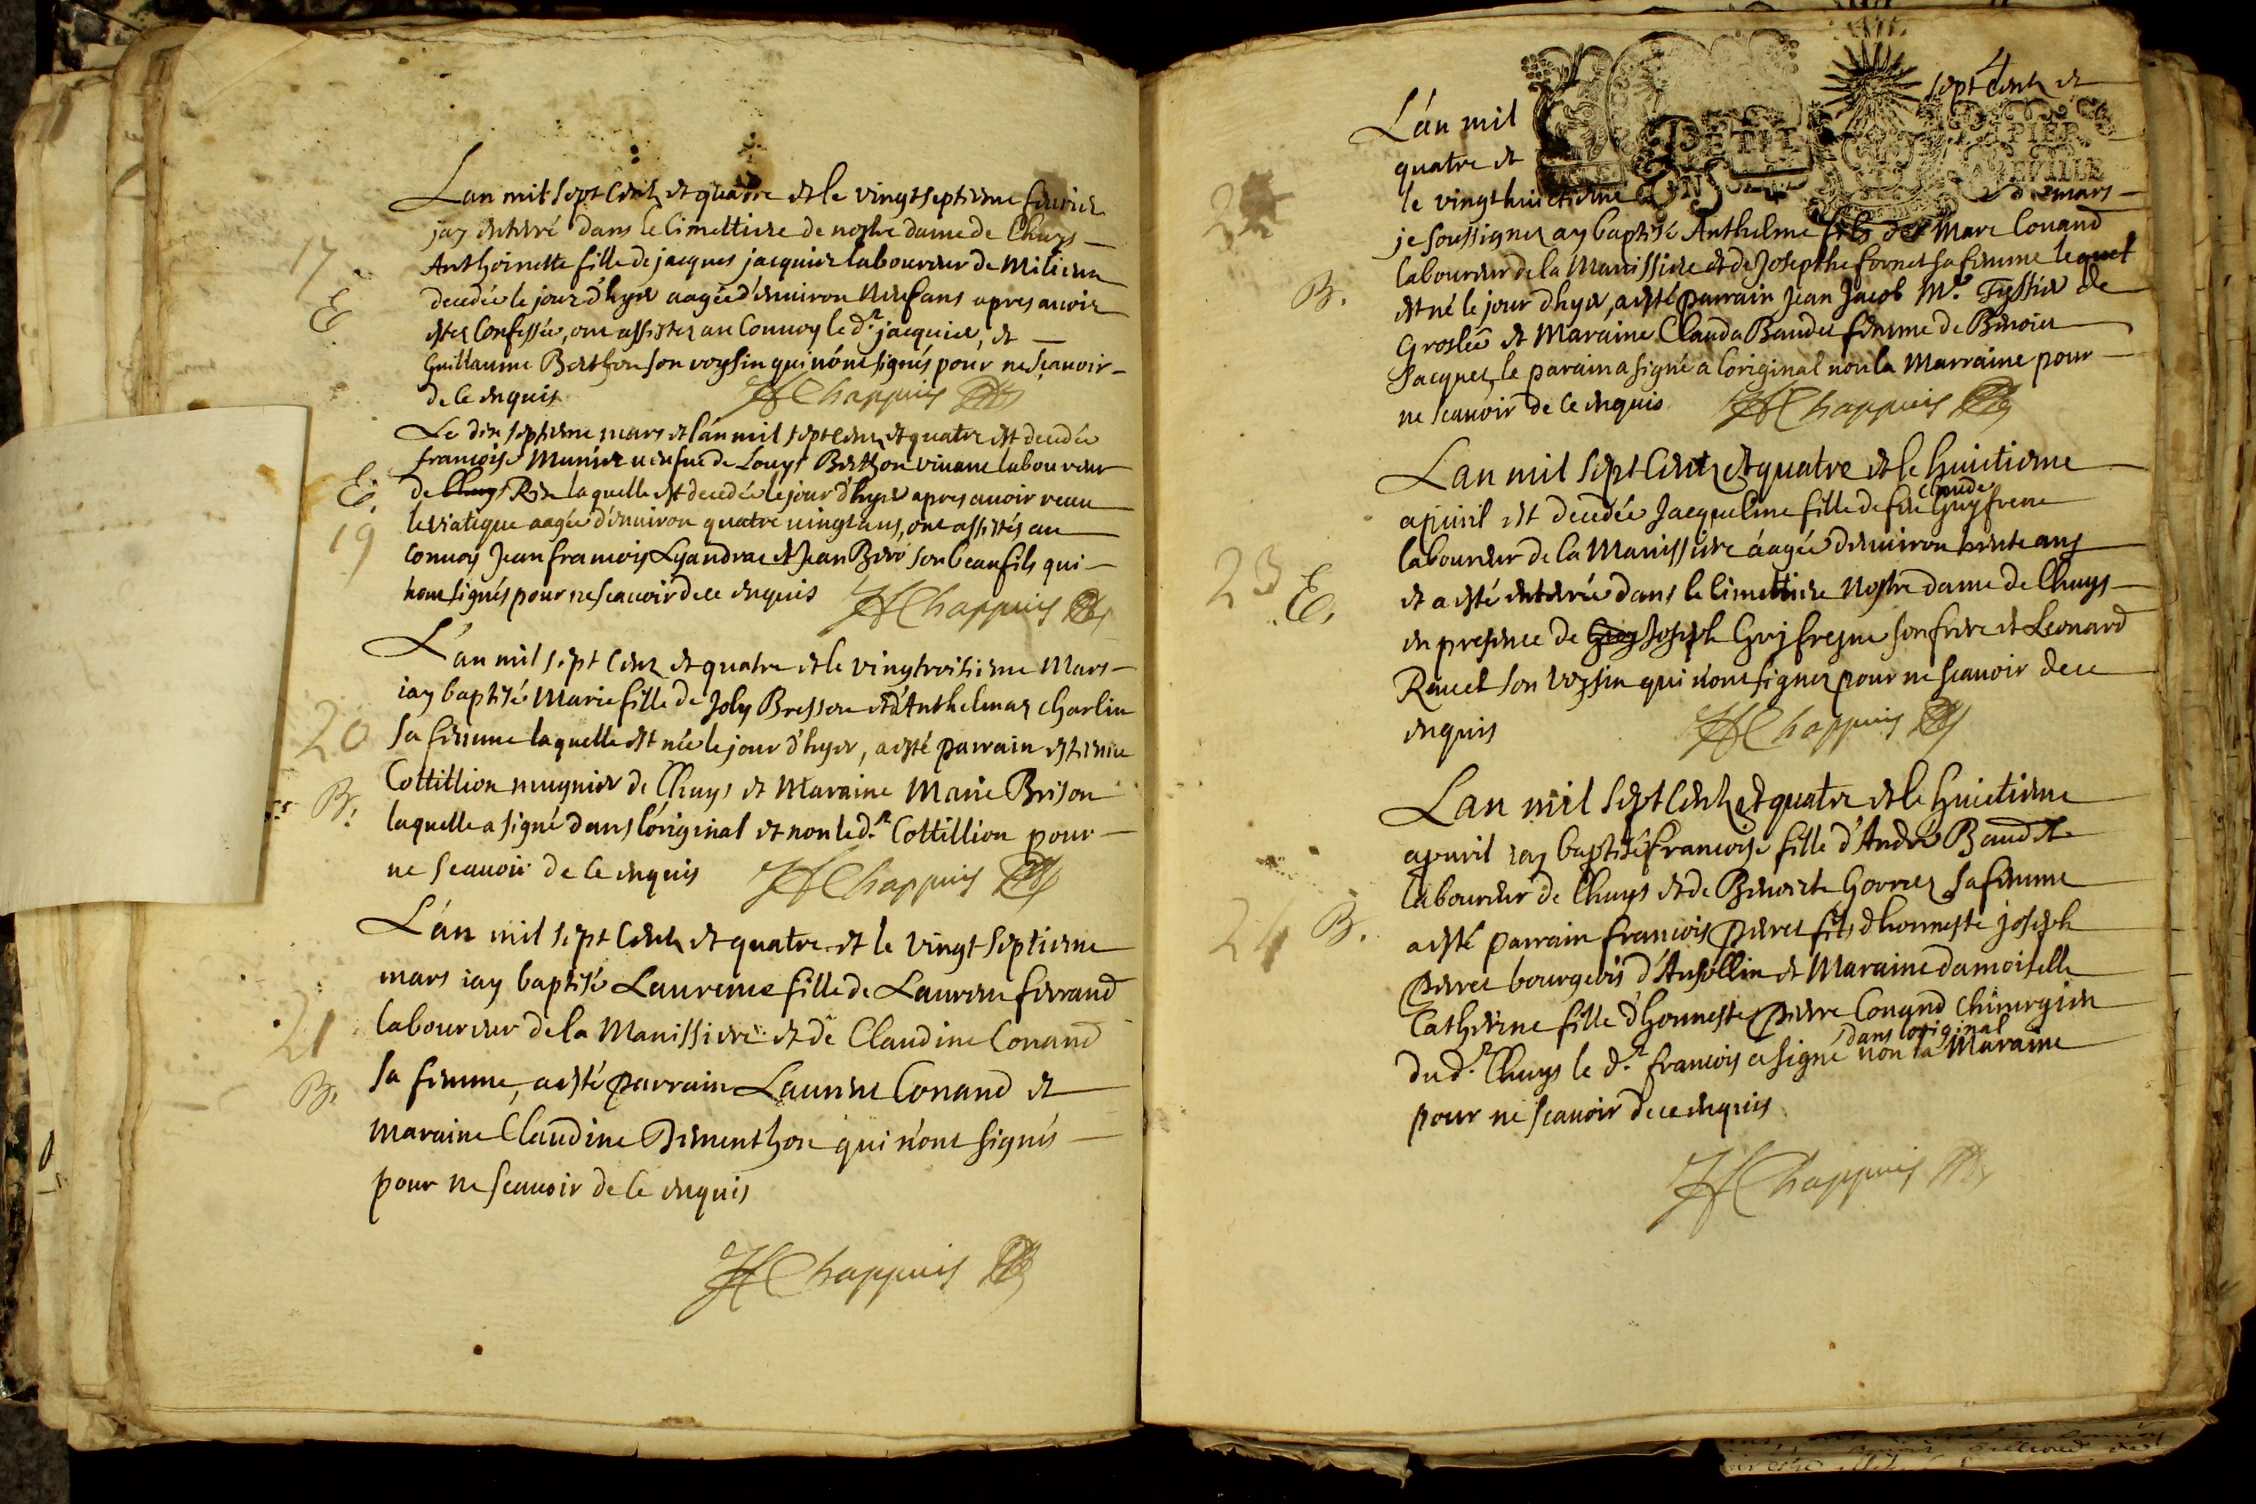 Lan mil sept centz et quatre et le vingt septieme feurier
jay enterré dans le Cimettiere de nostre dame de Lhuys
17
Anthoinette fille de jacques jacquier laboureur de Milieu
decedée le jour d'hyer aagée d'enuiron neuf ans apres auoir
E
estez Confessée, ont assistez au Conuoy le d.t jacquier, et
Guillaume Berthon son voysin qui n'ont signés pour ne sçauoir
de ce enquis
JH Chappuis
Le dix septieme mars et l'an mil sept centz et quatre est decedée
françoise Munier ueufue de Louys Berthon viuant laboureur
E.
de Lhuys Rix laquelle est decedée le jour d'hyer apres auoir receu
le viatique aagée d'enuiron quatre uingt ans, ont assistés au
19
Conuoy Jean francois et Jean son beau fils qui
nont signés pour ne scauoir de ce enquis JH Chappuis
L'an mil sept centz et quatre et le vingtroisieme Mars
iay baptisé Marie fille de Joly Bresson et d'Anthelmaz Charlin
20
sa femme laquelle est née le jour d'hyer, a esté parrain estienne
Cottillion mugnier de Lhuys et Maraine Marie Brison
B.
laquelle a signé dans l'original et non le d.t Cottillion pour
ne scauoir de ce enquis JH Chappuis
L'an mil sept centz et quatre et le vingt septieme
mars iay baptisé Laurence fille de Laurent ferrand
21
laboureur de la Manissiere et de Claudine Conand
B.
sa femme, a esté parrain Laurent Conand et
maraine Claudine Dementhon qui n'ont signés
pour ne scauoir de ce enquis
JH Chappuis
4
L'an mil sept centz et
PETIT PAPIER
quatre et
le vingt huictieme de mars
je soussignez ay baptisé Anthelme fils de Marc Conand
laboureur de la Manissiere et de Josepthe fornet sa femme lequel
B.
est né le jour d'hyer, a esté parrain Jean Jacob M.e Tyssier de
Groslée et Maraine Clauda Baudet femme de Benoict
Jacquet, le parain a signé a l'original non la Marraine pour
ne scauoir de ce enquis JH Chappuis
Lan mil sept centz et quatre et le huictieme
Claude
apuril est decedée Jacqueline fille de feu Guyfrene
laboureur de la Manissiere âagée d'enuiron trente ans
23 E.
et a esté enterrée dans le Cimettiere Nostre dame de Lhuys
en presence de Guy Joseph Guyfresne son frere et Leonard
Reuel son voysin qui n'ont signez pour ne scauoir de ce
enquis JH Chappuis
Lan mil sept centz et quatre et le huictieme
apuril iay baptisé francoise fille d'André Baudet
laboureur de Lhuys et de Benoiste Gorrez sa femme
24 B.
a esté parrain francois Perret fils d'honneste joseph
Perret bourgeois d'Ansollin et Maraine damoiselle
Catherine fille d'honneste Pierre Conand Chirurgien
dans loriginal
du d.t Lhuys le d.t francois a signé non la Maraine
pour ne scauoir de ce enquis
JH Chappuis